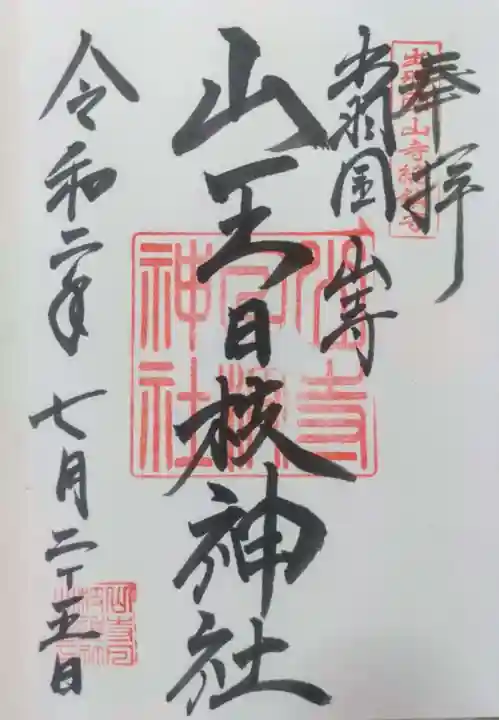 奉拝
出羽国 山寺
山王日枝神社
令和二年 七月二十五日
山寺日枝神社